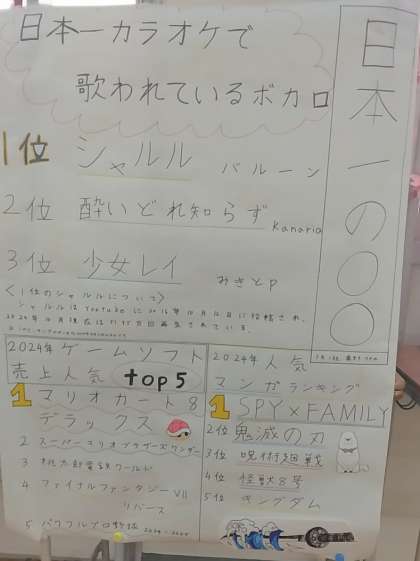 日本一の〇〇
日本一カラオケで
歌われているボカロ
1位 シャルル バルーン
2位 酔いどれ知らず Kanaria
3位 少女レイ みきとP
<1位のシャルルについて>
シャルルはYouTubeに2016年10月12日に投稿され、
2024年10月現在は
再生されている。
2024年ゲームソフト
売上人気 top5
1 マリオカート8
デラックス
2 スーパーマリオブラザーズワンダー
3 桃太郎電鉄ワールド
4 ファイナルファンタジーVII
リバース
5 パワフルプロ野球 2024-2025
2024年人気
マンガランキング
1 SPY×FAMILY
2位 鬼滅の刃
3位 呪術廻戦
4位 怪獣8号
5位 キングダム